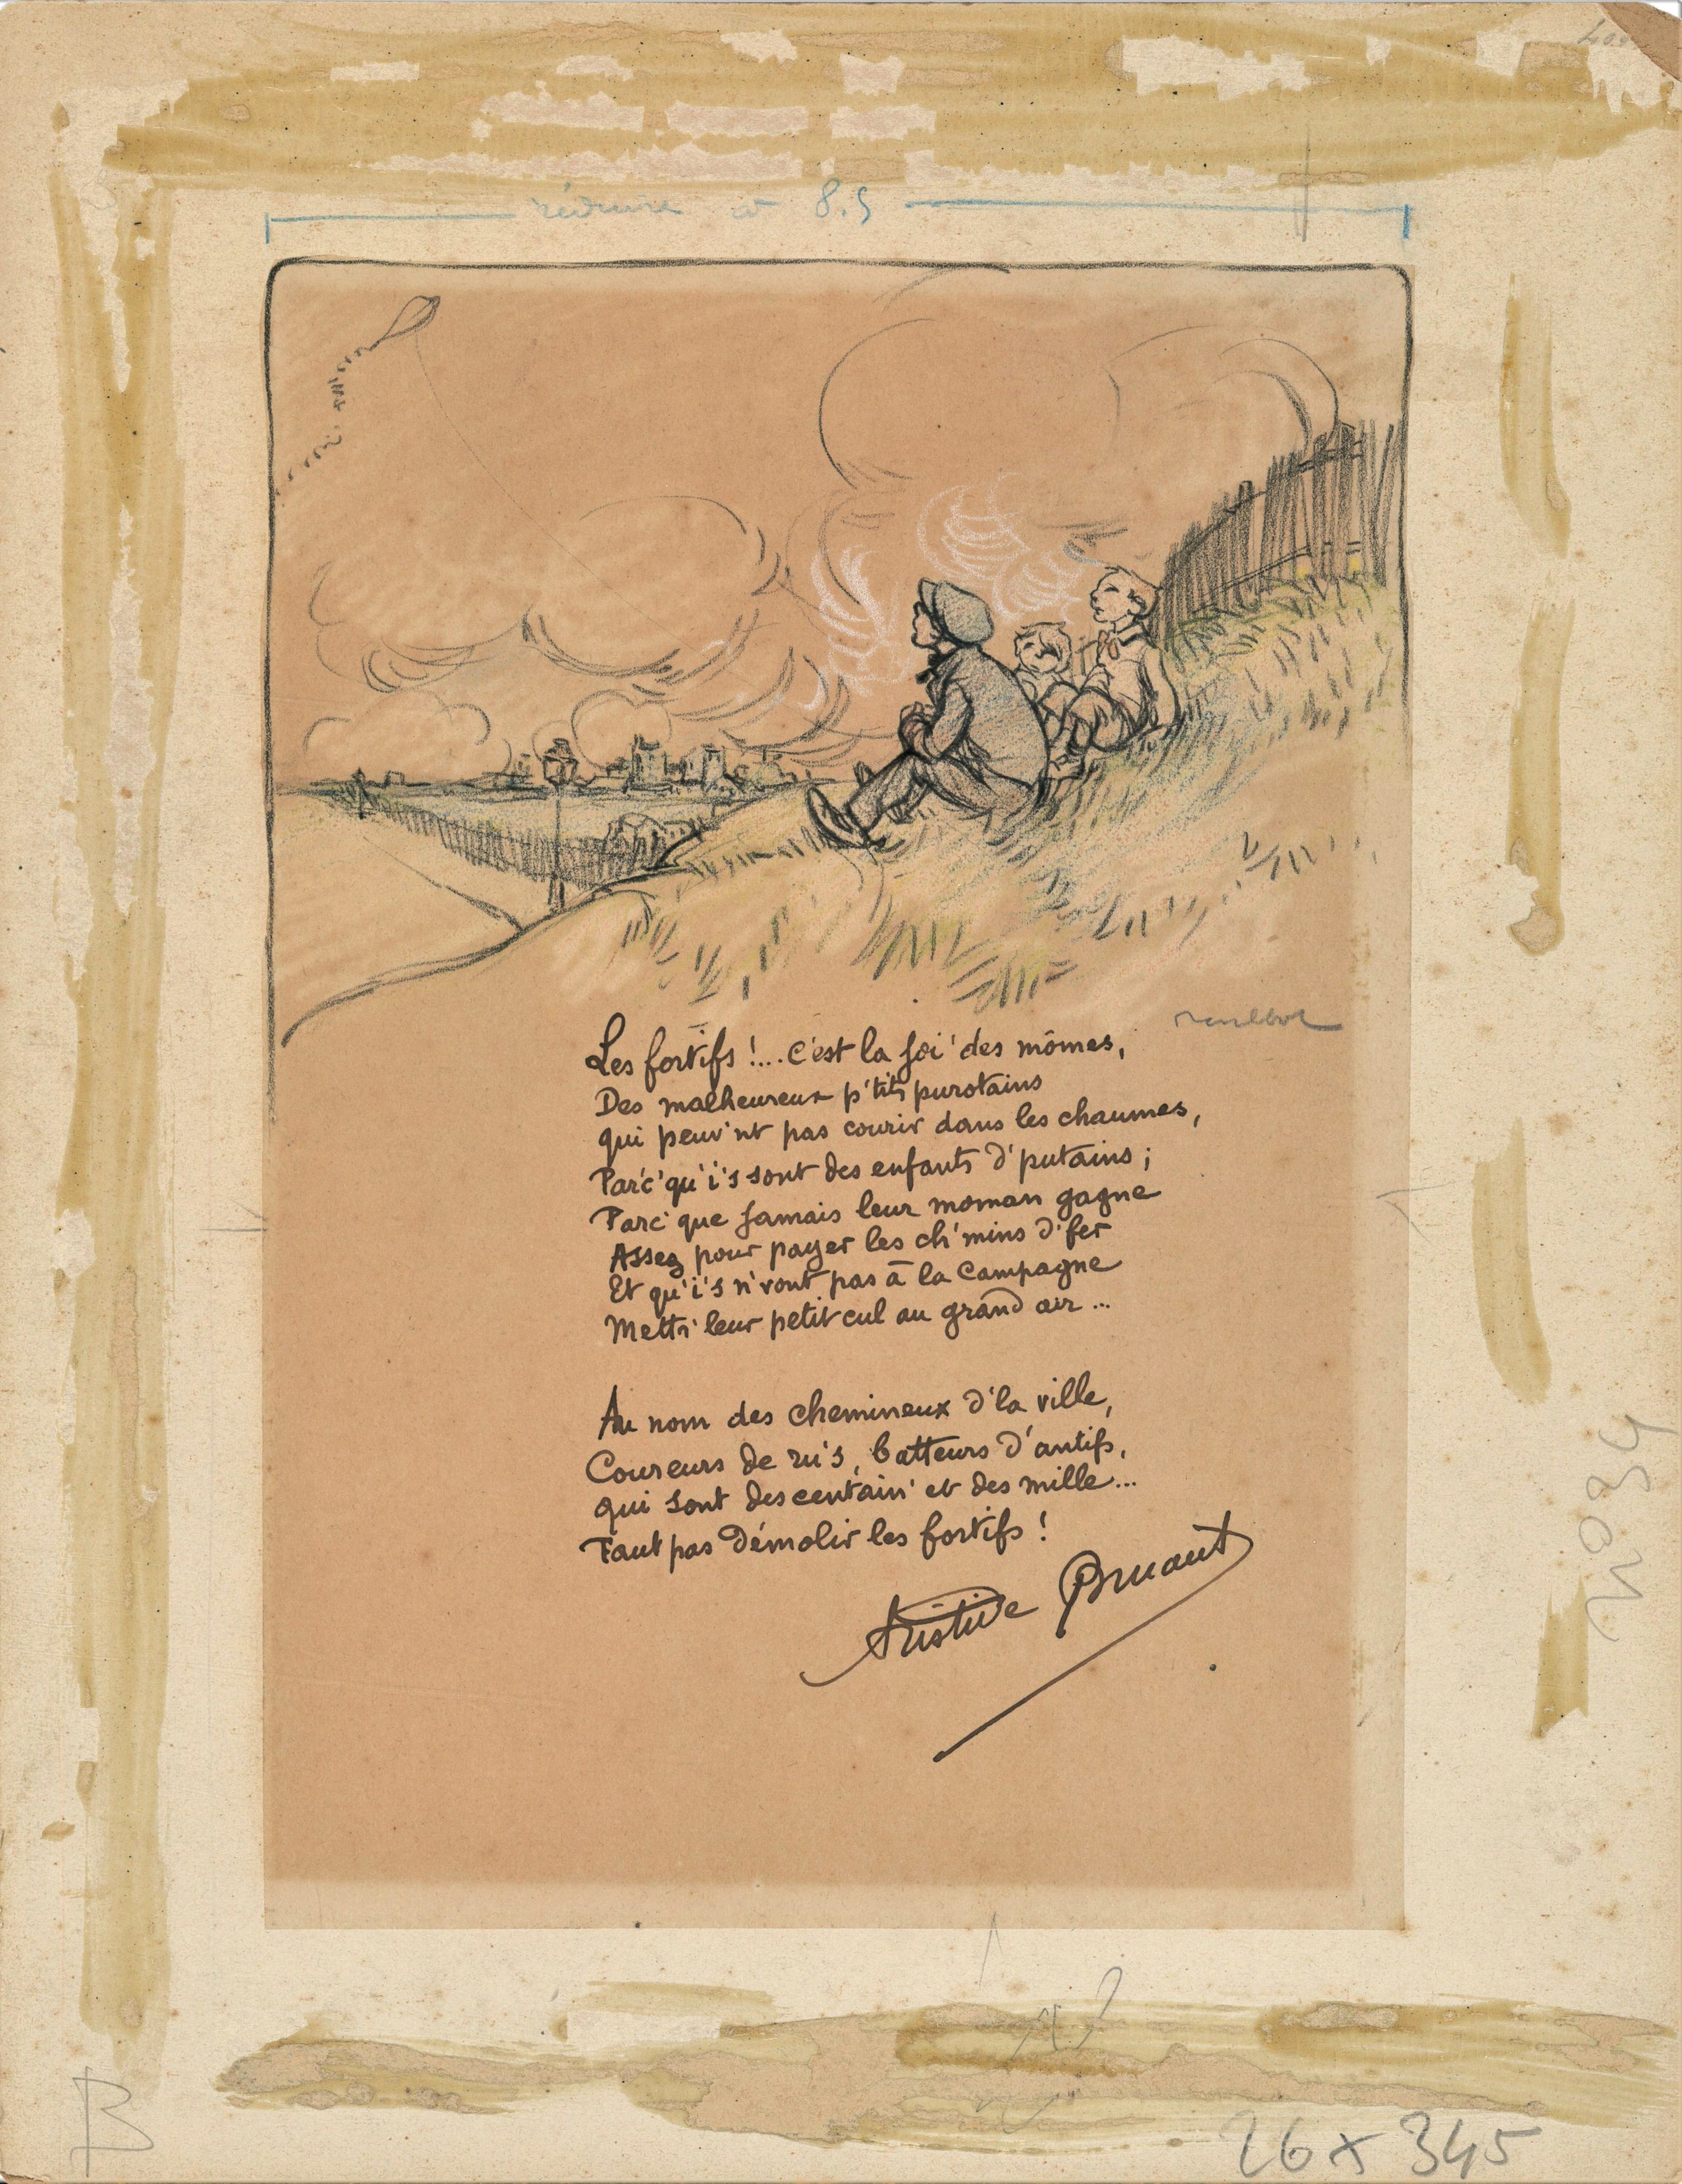 réduire à 8.5
poulbot
Les fortifs !... c'est la joi' des mômes,
Des malheureux p'tits purotains
qui peuv'nt pas courir dans les chaumes,
Parc' qu'i's sont des enfants d'putains ;
Parc' que jamais leur moman gagne
Assez pour payer les ch'mins d'fer
Et qu'i's n'vont pas à la campagne
Mett' leur petit cul au grand air ...
Au nom des chemineux d'la ville,
Coureurs de ru's, batteurs d'antifs,
qui sont des centain' et des mille ...
Faut pas démolir les fortifs !
Aristide Bruant
4034
B
26 x 345